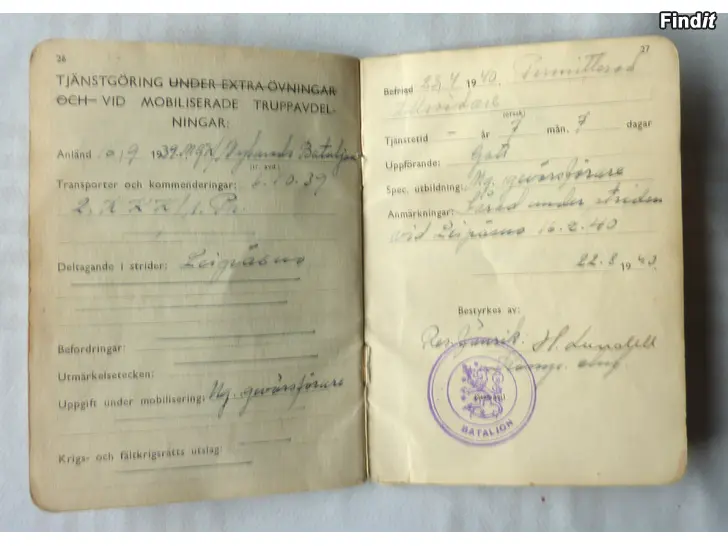 Findit
26
TJÄNSTGÖRING UNDER EXTRA ÖVNINGAR
OCH VID MOBILISERADE TRUPPAVDEL-
NINGAR:
Anländ 10/9 1939 Nylands Bataljon
Transporter och kommenderingar: 6.10.39
2. K K K / 1. Pr.
Deltagande i strider: Leipäsuo
Befordringar:
Utmärkelsetecken:
Uppgift under mobilisering: Mg. gevärsförare
Krigs- och fältkrigsrätts utslag:
27
Befriad 1940. Permitterad
Tjänstetid – år 7 mån. 7 dagar
Uppförande: Gott
Spec. utbildning: Mg. gevärsförare
Anmärkningar: Sårad under striden
vid Leipäsuo 16.2.40
22.8 1940
Bestyrkes av:
Res. fänrik H. Lundell
BATALJON